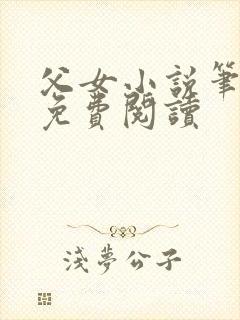 父女小説筆
免費閱讀
淺夢公子